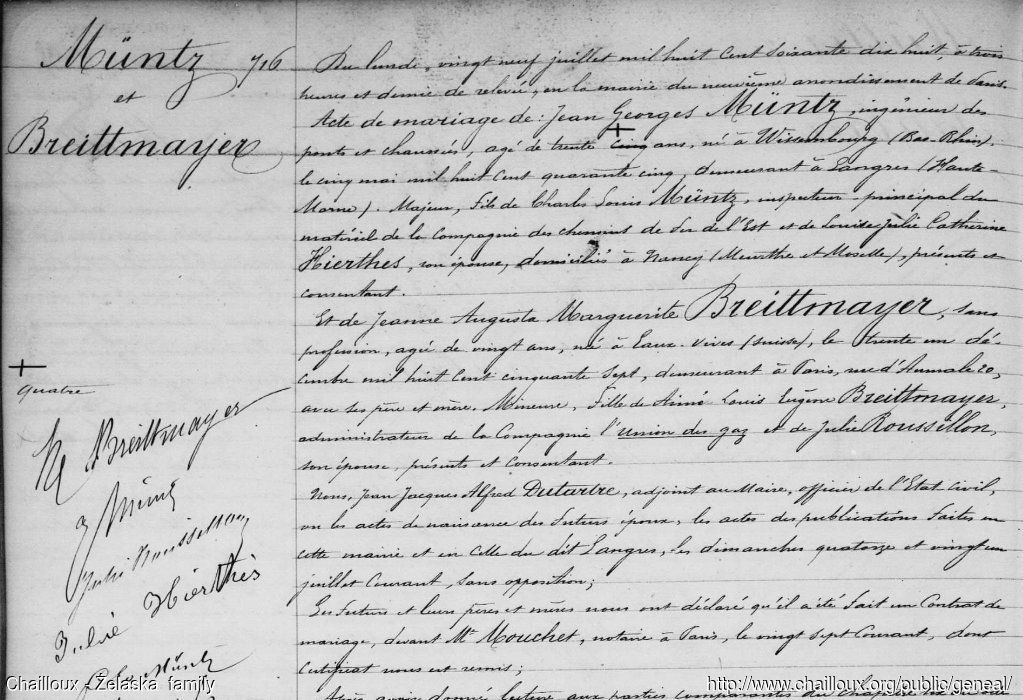 Müntz 716
et
Breittmayer
Du lundi, vingt neuf juillet mil huit cent soixante dix huit, à trois
heures et demie de relevée, en la mairie du neuvième arrondissement de Paris.
Acte de mariage de : Jean Georges Müntz, ingénieur des
ponts et chaussées, agé de trente cinq ans, né à Wissembourg (Bas-Rhin),
le cinq mai mil huit cent quarante cinq, demeurant à Langres (Haute-
Marne). Majeur, Fils de Charles Louis Müntz, inspecteur principal du
matériel de la Compagnie des chemins de fer de l'Est et de Louise Julie Catherine
Hierthes, son épouse, domiciliés à Nancy (Meurthe et Moselle), présents et
consentant.
Et de Jeanne Augusta Marguerite Breittmayer, sans
profession, agée de vingt ans, née à Eaux-Vives (Suisse), le trente un dé-
cembre mil huit cent cinquante sept, demeurant à Paris, rue d'Aumale 20,
avec ses père et mère. Mineure, Fille de Aimé Louis Eugène Breittmayer,
administrateur de la Compagnie l'union des gaz et de Julie Roussillon,
son épouse, présents et consentant.
Nous, Jean Jacques Alfred Dutartre, adjoint au Maire, officier de l'Etat civil,
vu les actes de naissance des futurs époux, les actes des publications faites en
cette mairie et en celle du dit Langres, les dimanches quatorze et vingt un
juillet courant, sans opposition;
Les futurs et leurs pères et mères nous ont déclaré qu'il a été fait un Contrat de
mariage, devant Me Mouchet, notaire à Paris, le vingt sept courant, dont
certificat nous est remis;
Après avoir donné lecture aux parties comparantes
quatre
Breittmayer
J Müntz
Julie Roussillon
Julie Hierthès
Müntz
Chailloux - Zelaska family
http://www.chailloux.org/public/geneal/